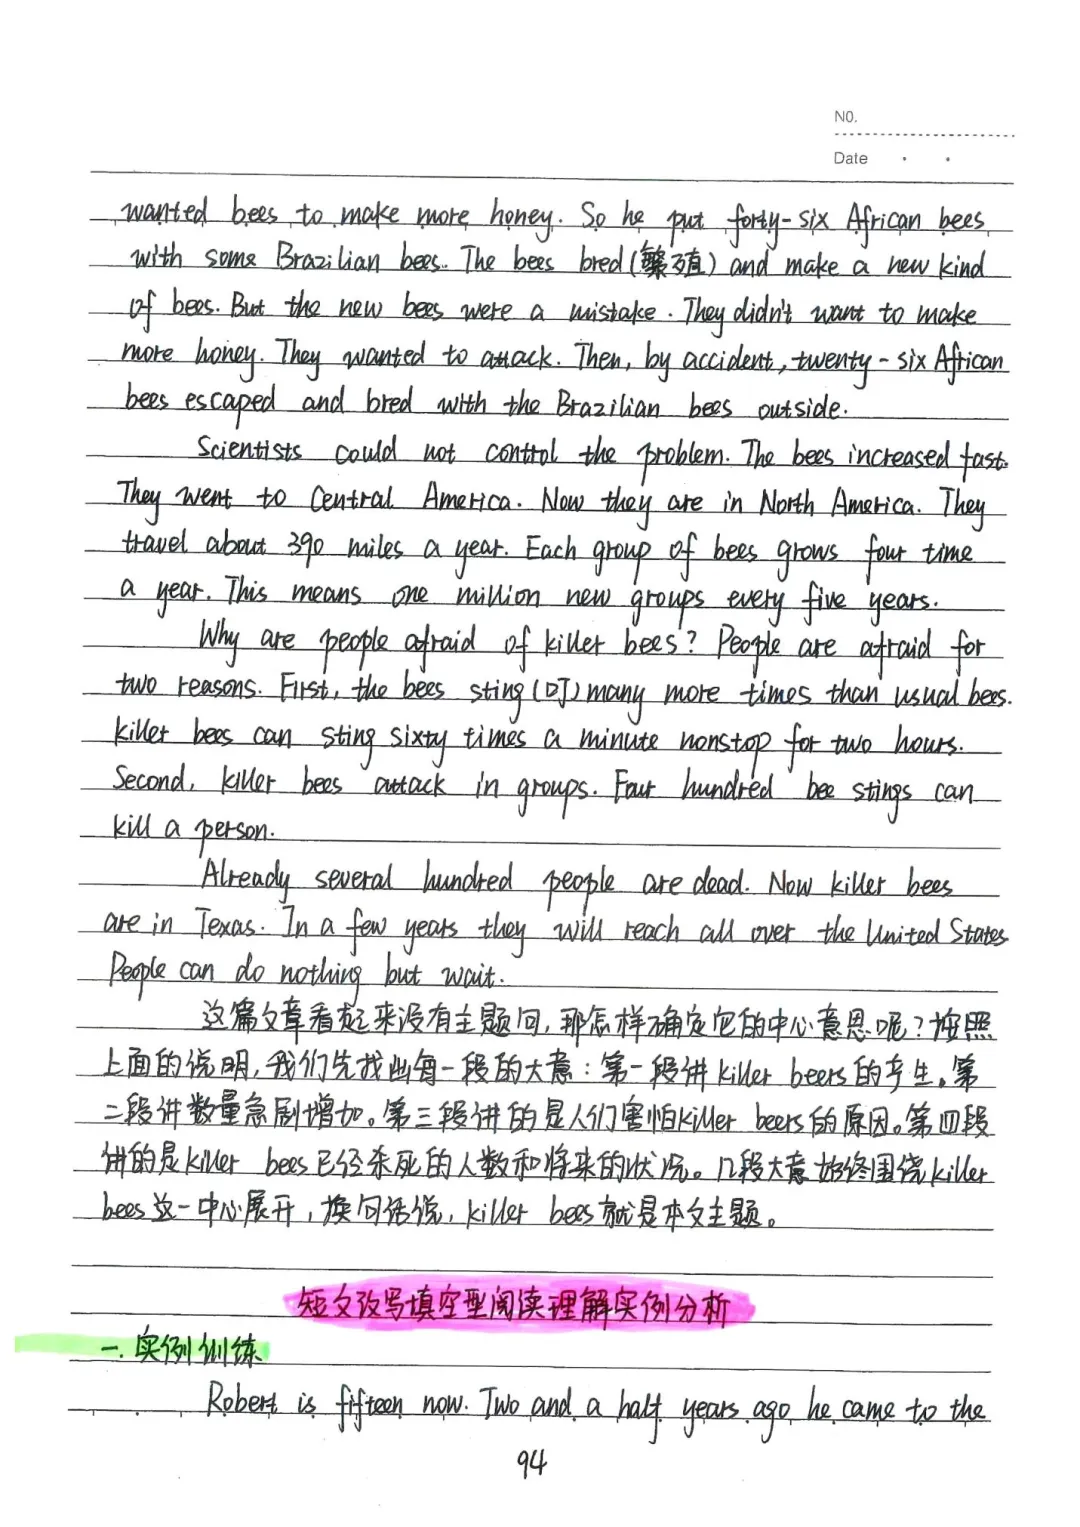 NO.
Date
wanted bees to make more honey. So he put forty-six African bees
with some Brazilian bees. The bees bred (繁殖) and make a new kind
of bees. But the new bees were a mistake. They didn't want to make
more honey. They wanted to attack. Then, by accident, twenty-six African
bees escaped and bred with the Brazilian bees outside.
Scientists could not control the problem. The bees increased fast.
They went to Central America. Now they are in North America. They
travel about 390 miles a year. Each group of bees grows four time
a year. This means one million new groups every five years.
Why are people afraid of killer bees? People are afraid for
two reasons. First, the bees sting (叮) many more times than usual bees.
killer bees can sting sixty times a minute nonstop for two hours.
Second, killer bees attack in groups. Four hundred bee stings can
kill a person.
Already several hundred people are dead. Now killer bees
are in Texas. In a few years they will reach all over the United States
People can do nothing but wait.
这篇文章看起来没有主题句,那怎样确定它的中心意思呢?按照
上面的说明,我们先找出每一段的大意:第一段讲killer beers的产生。第
二段讲数量急剧增加。第三段讲的是人们害怕killer beers的原因。第四段
讲的是killer bees已经杀死的人数和将来的状况。几段大意始终围绕killer
bees这一中心展开,换句话说,killer bees就是本文主题。
短文改写填空型阅读理解实例分析
一.实例训练
Robert is fifteen now. Two and a half years ago he came to the
94